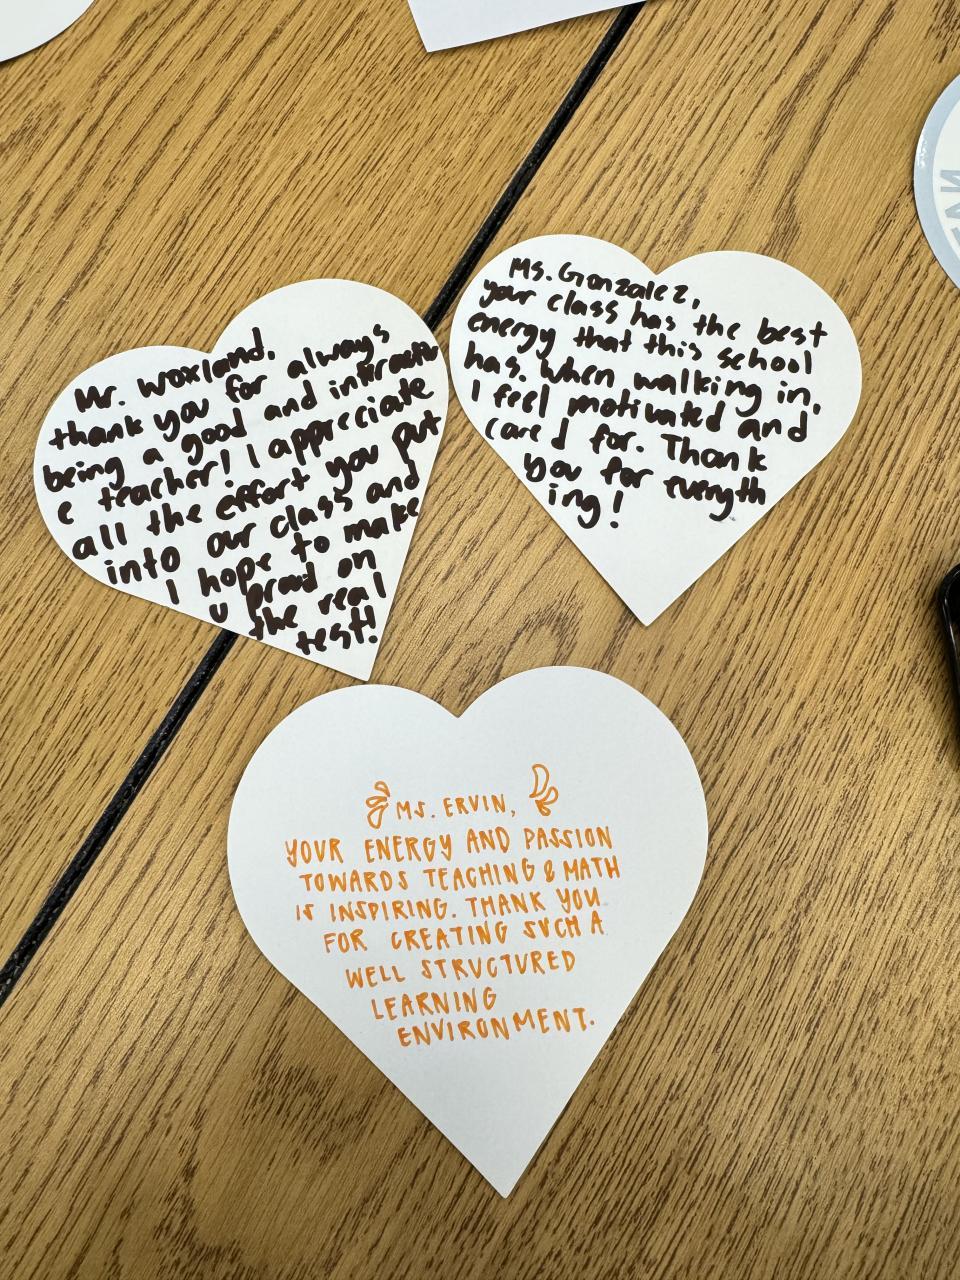 Mr. Woxland,
thank you for always
being a good and interactiv
e teacher! I appreciate
all the effort you put
into our class and
I hope to make
u proud on
the real
test!
Ms. Gonzalez,
your class has the best
energy that this school
has. When walking in,
I feel motivated and
cared for. Thank
you for everyth
ing!
MS. ERVIN,
YOUR ENERGY AND PASSION
TOWARDS TEACHING & MATH
IS INSPIRING. THANK YOU
FOR CREATING SUCH A
WELL STRUCTURED
LEARNING
ENVIRONMENT.